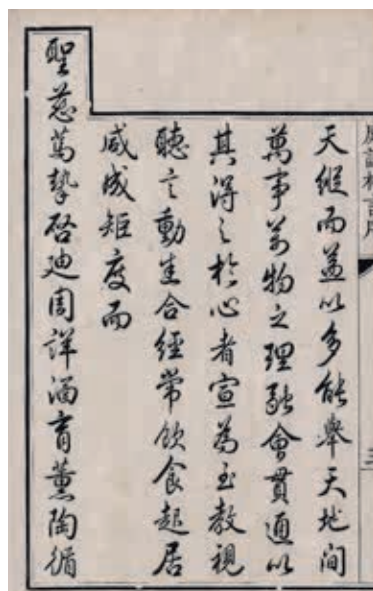 天縱而益以多能舉天地間
萬事萬物之理融會貫通以
其得之於心者宣為至教視
聽言動悉合經常飲食起居
咸成矩度而
聖慈篤摯啓迪周詳涵育薰陶循